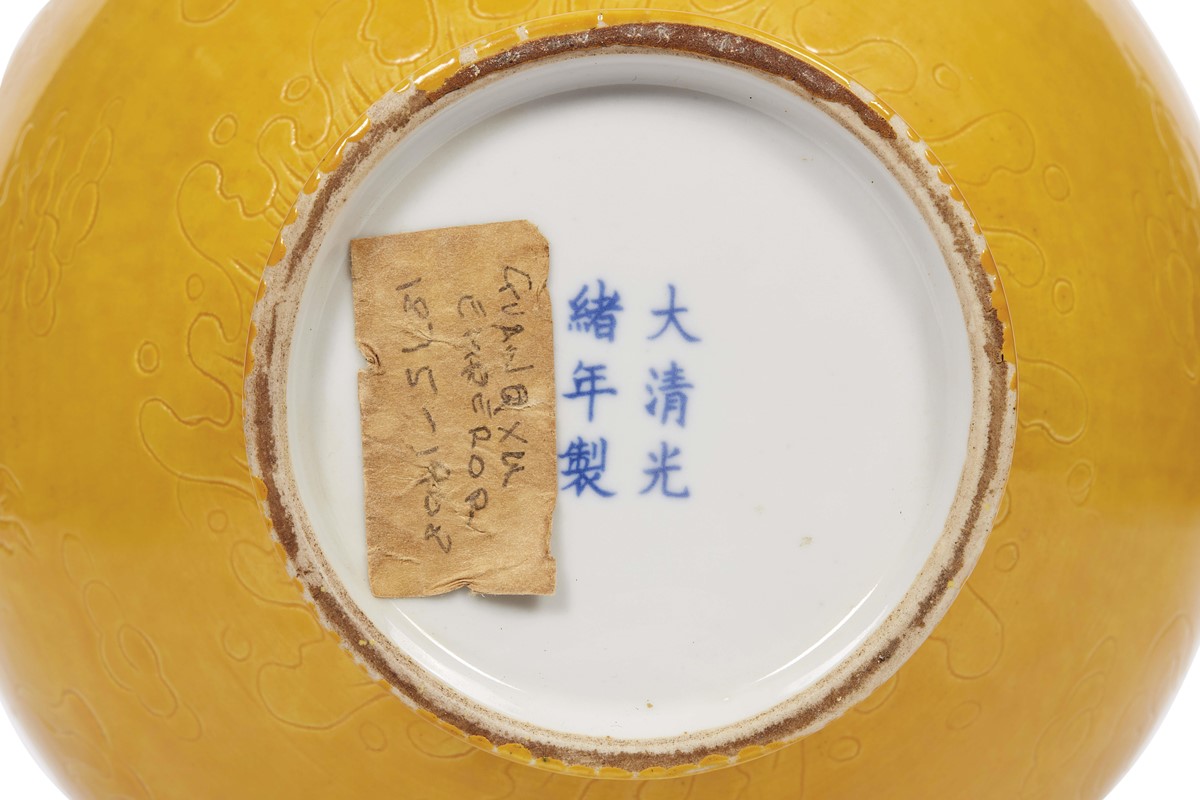 大清光
緒年製
GUANGXU
EMPEROR
1875-1908